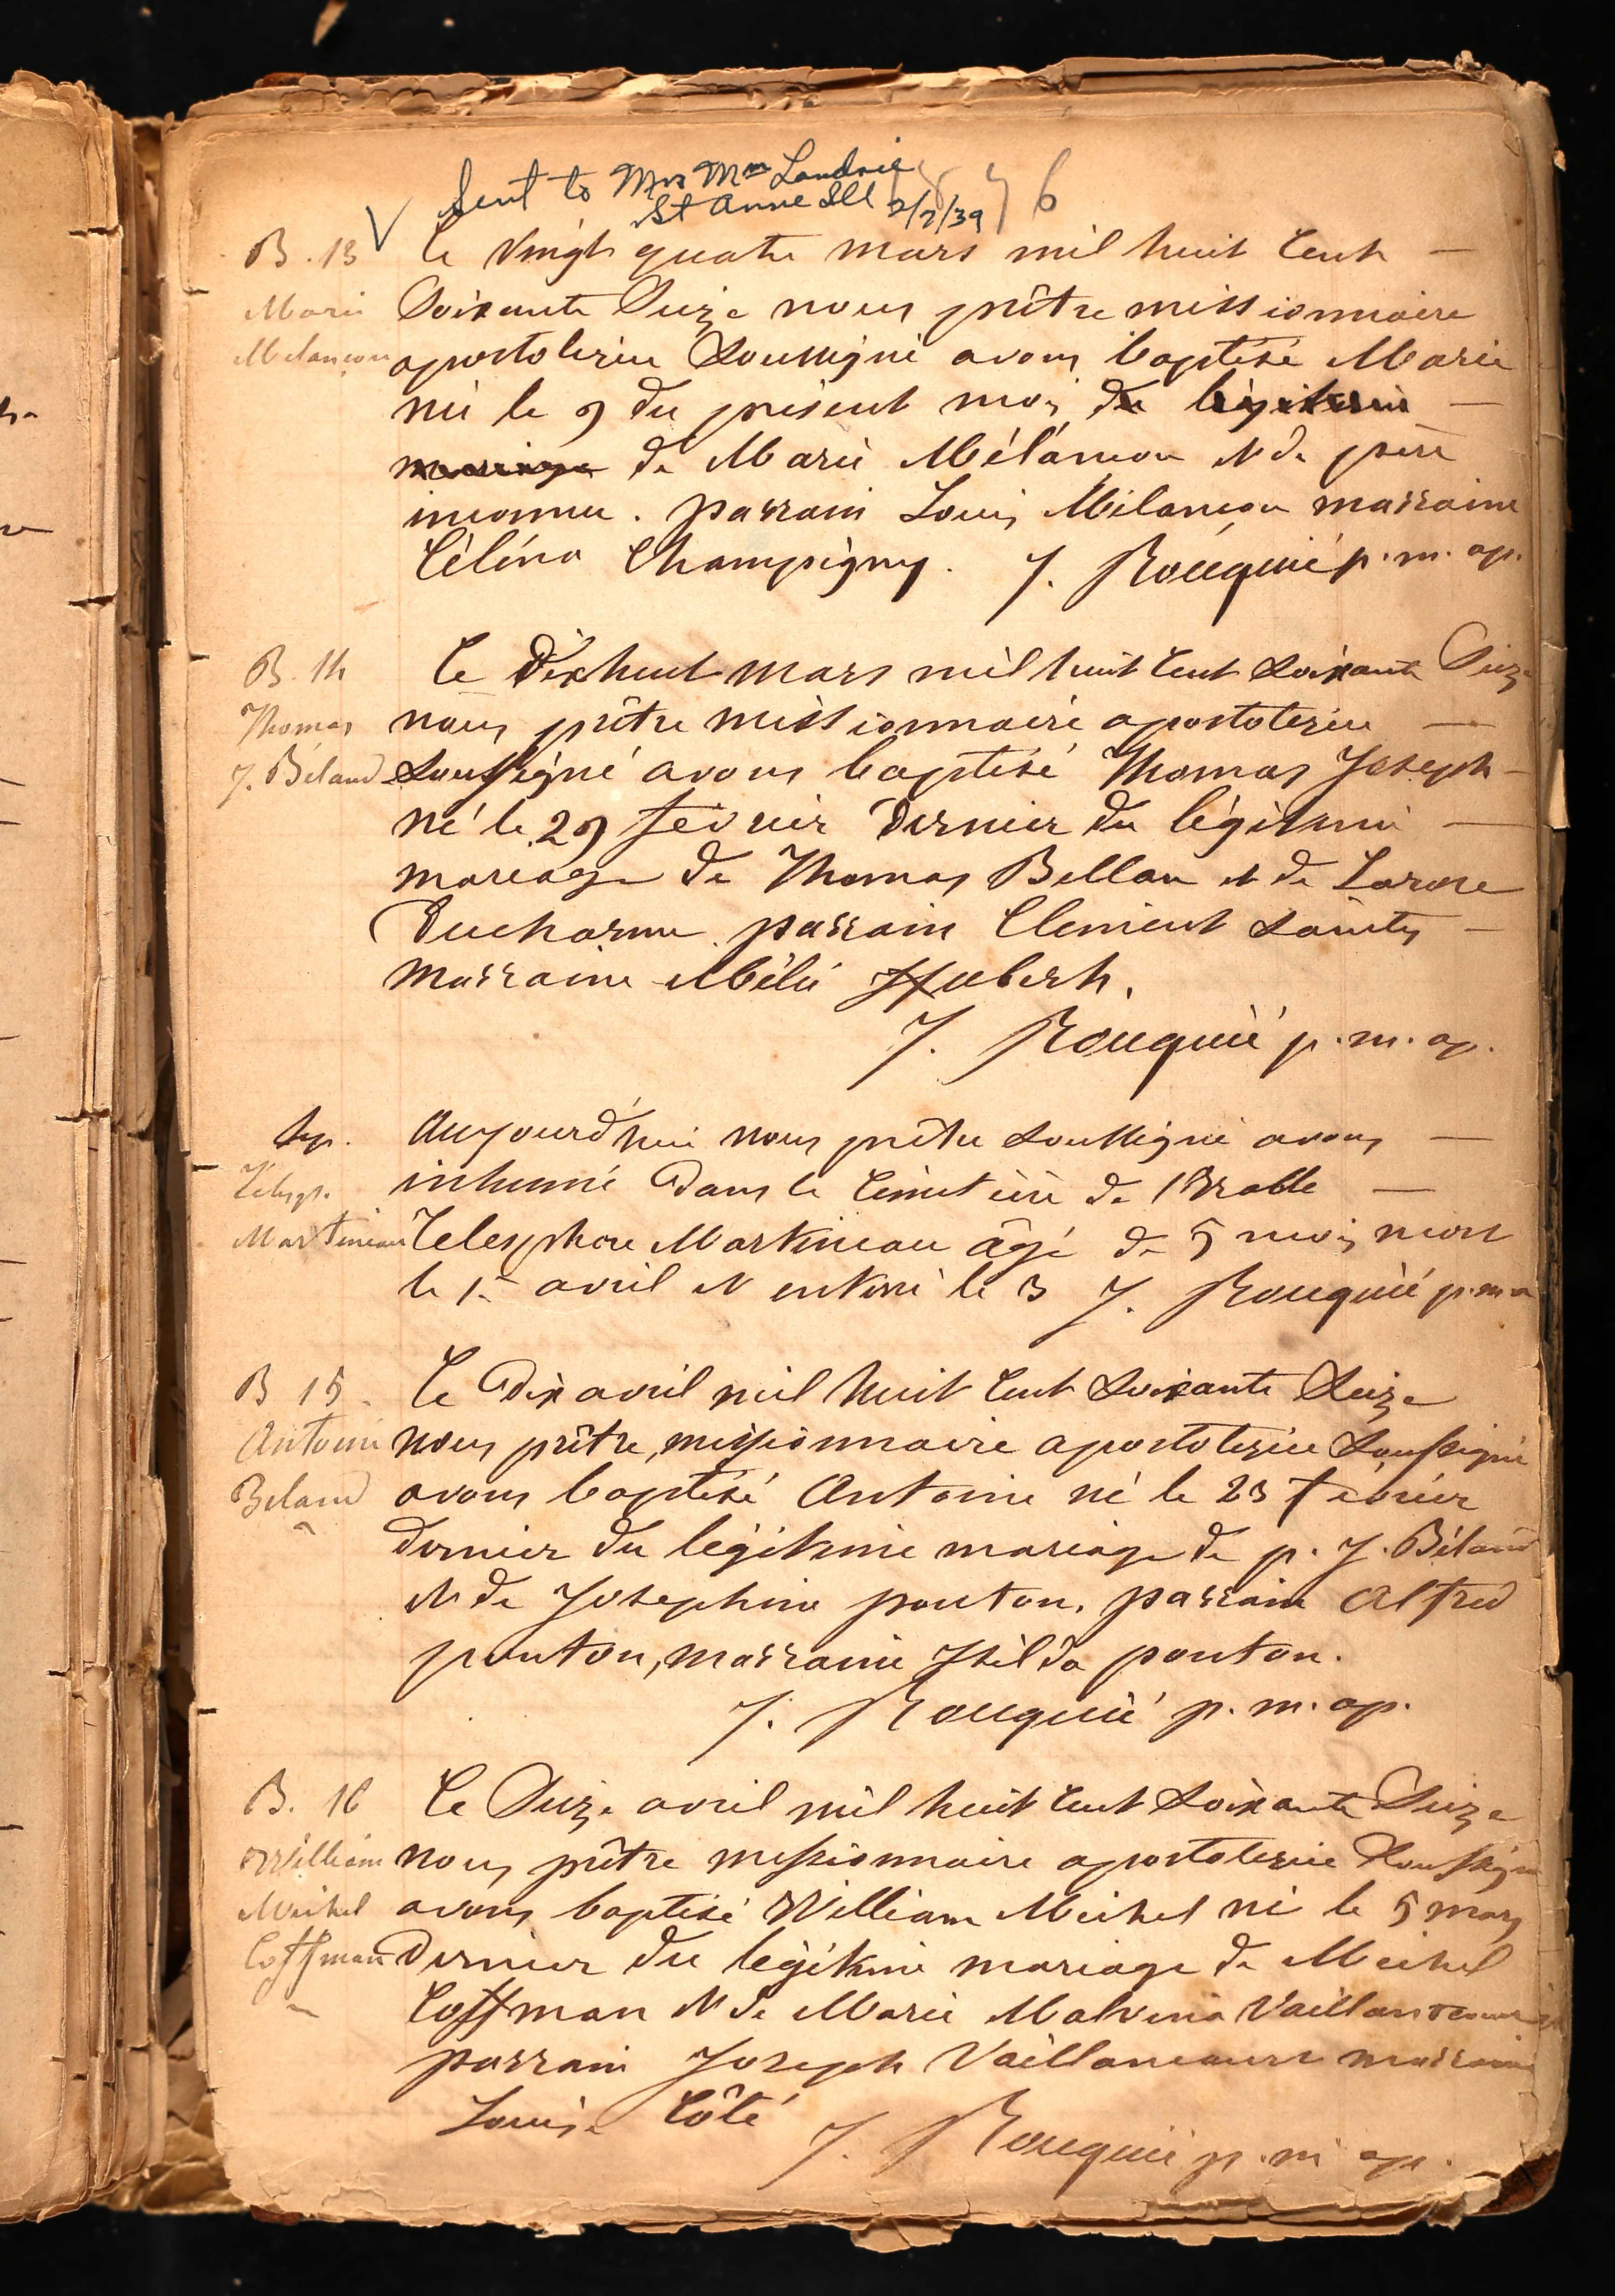 Sent to Mrs Wm Landrie 1876
St Anne Ill 2/7/39
B. 13 Le vingt quatre mars mil huit cent —
Marie soixante seize nous prêtre missionnaire
Melançon apostolique soussigné avons baptisé Marie
né le 9 du présent mois du légitime —
mariage de Marie Mélançon et de père
inconnu. parrain Louis Mélançon marraine
Célina Champigny. J. Rouquié p. m. ap.
B. 14 Le dix huit mars mil huit cent soixante seize
Thomas nous prêtre missionnaire apostolique —
J. Béland soussigné avons baptisé Thomas Joseph —
né le 29 février dernier du légitime —
mariage de Thomas Bellan et de
Ducharme parrain Clement —
marraine Mélie Hubert.
J. Rouquié p. m. ap.
Sep. Aujourd'hui nous prêtre soussigné avons —
Télesp. inhumé dans le cimetière de l'Erable —
Martineau Telesphore Martineau âgé de 5 mois mort
le 1er avril et enterré le 3 J. Rouquié p. m. a
B 15. Le dix avril mil huit cent soixante seize
Antoine nous prêtre, missionnaire apostolique soussigné
Beland avons baptisé Antoine né le 23 février
dernier du légitime mariage de p. J. Béland
et de Josephine pouton, parrain Alfred
pouton, marraine Hilda pouton.
J. Rouquié p. m. ap.
B. 16 Le seize avril mil huit cent soixante seize
William nous prêtre missionnaire apostolique soussigné
Meichel avons baptisé William Meichel né le 5 mars
Coffman dernier du légitime mariage de Meichel
Coffman et de Marie Malvina Vaillancourt
parrain Joseph Vaillancourt marraine
Louise Côté J. Rouquié p. m. ap.